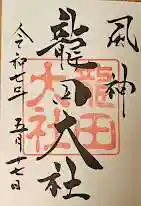 風神
龍田大社
龍田大社
令和七年五月十七日